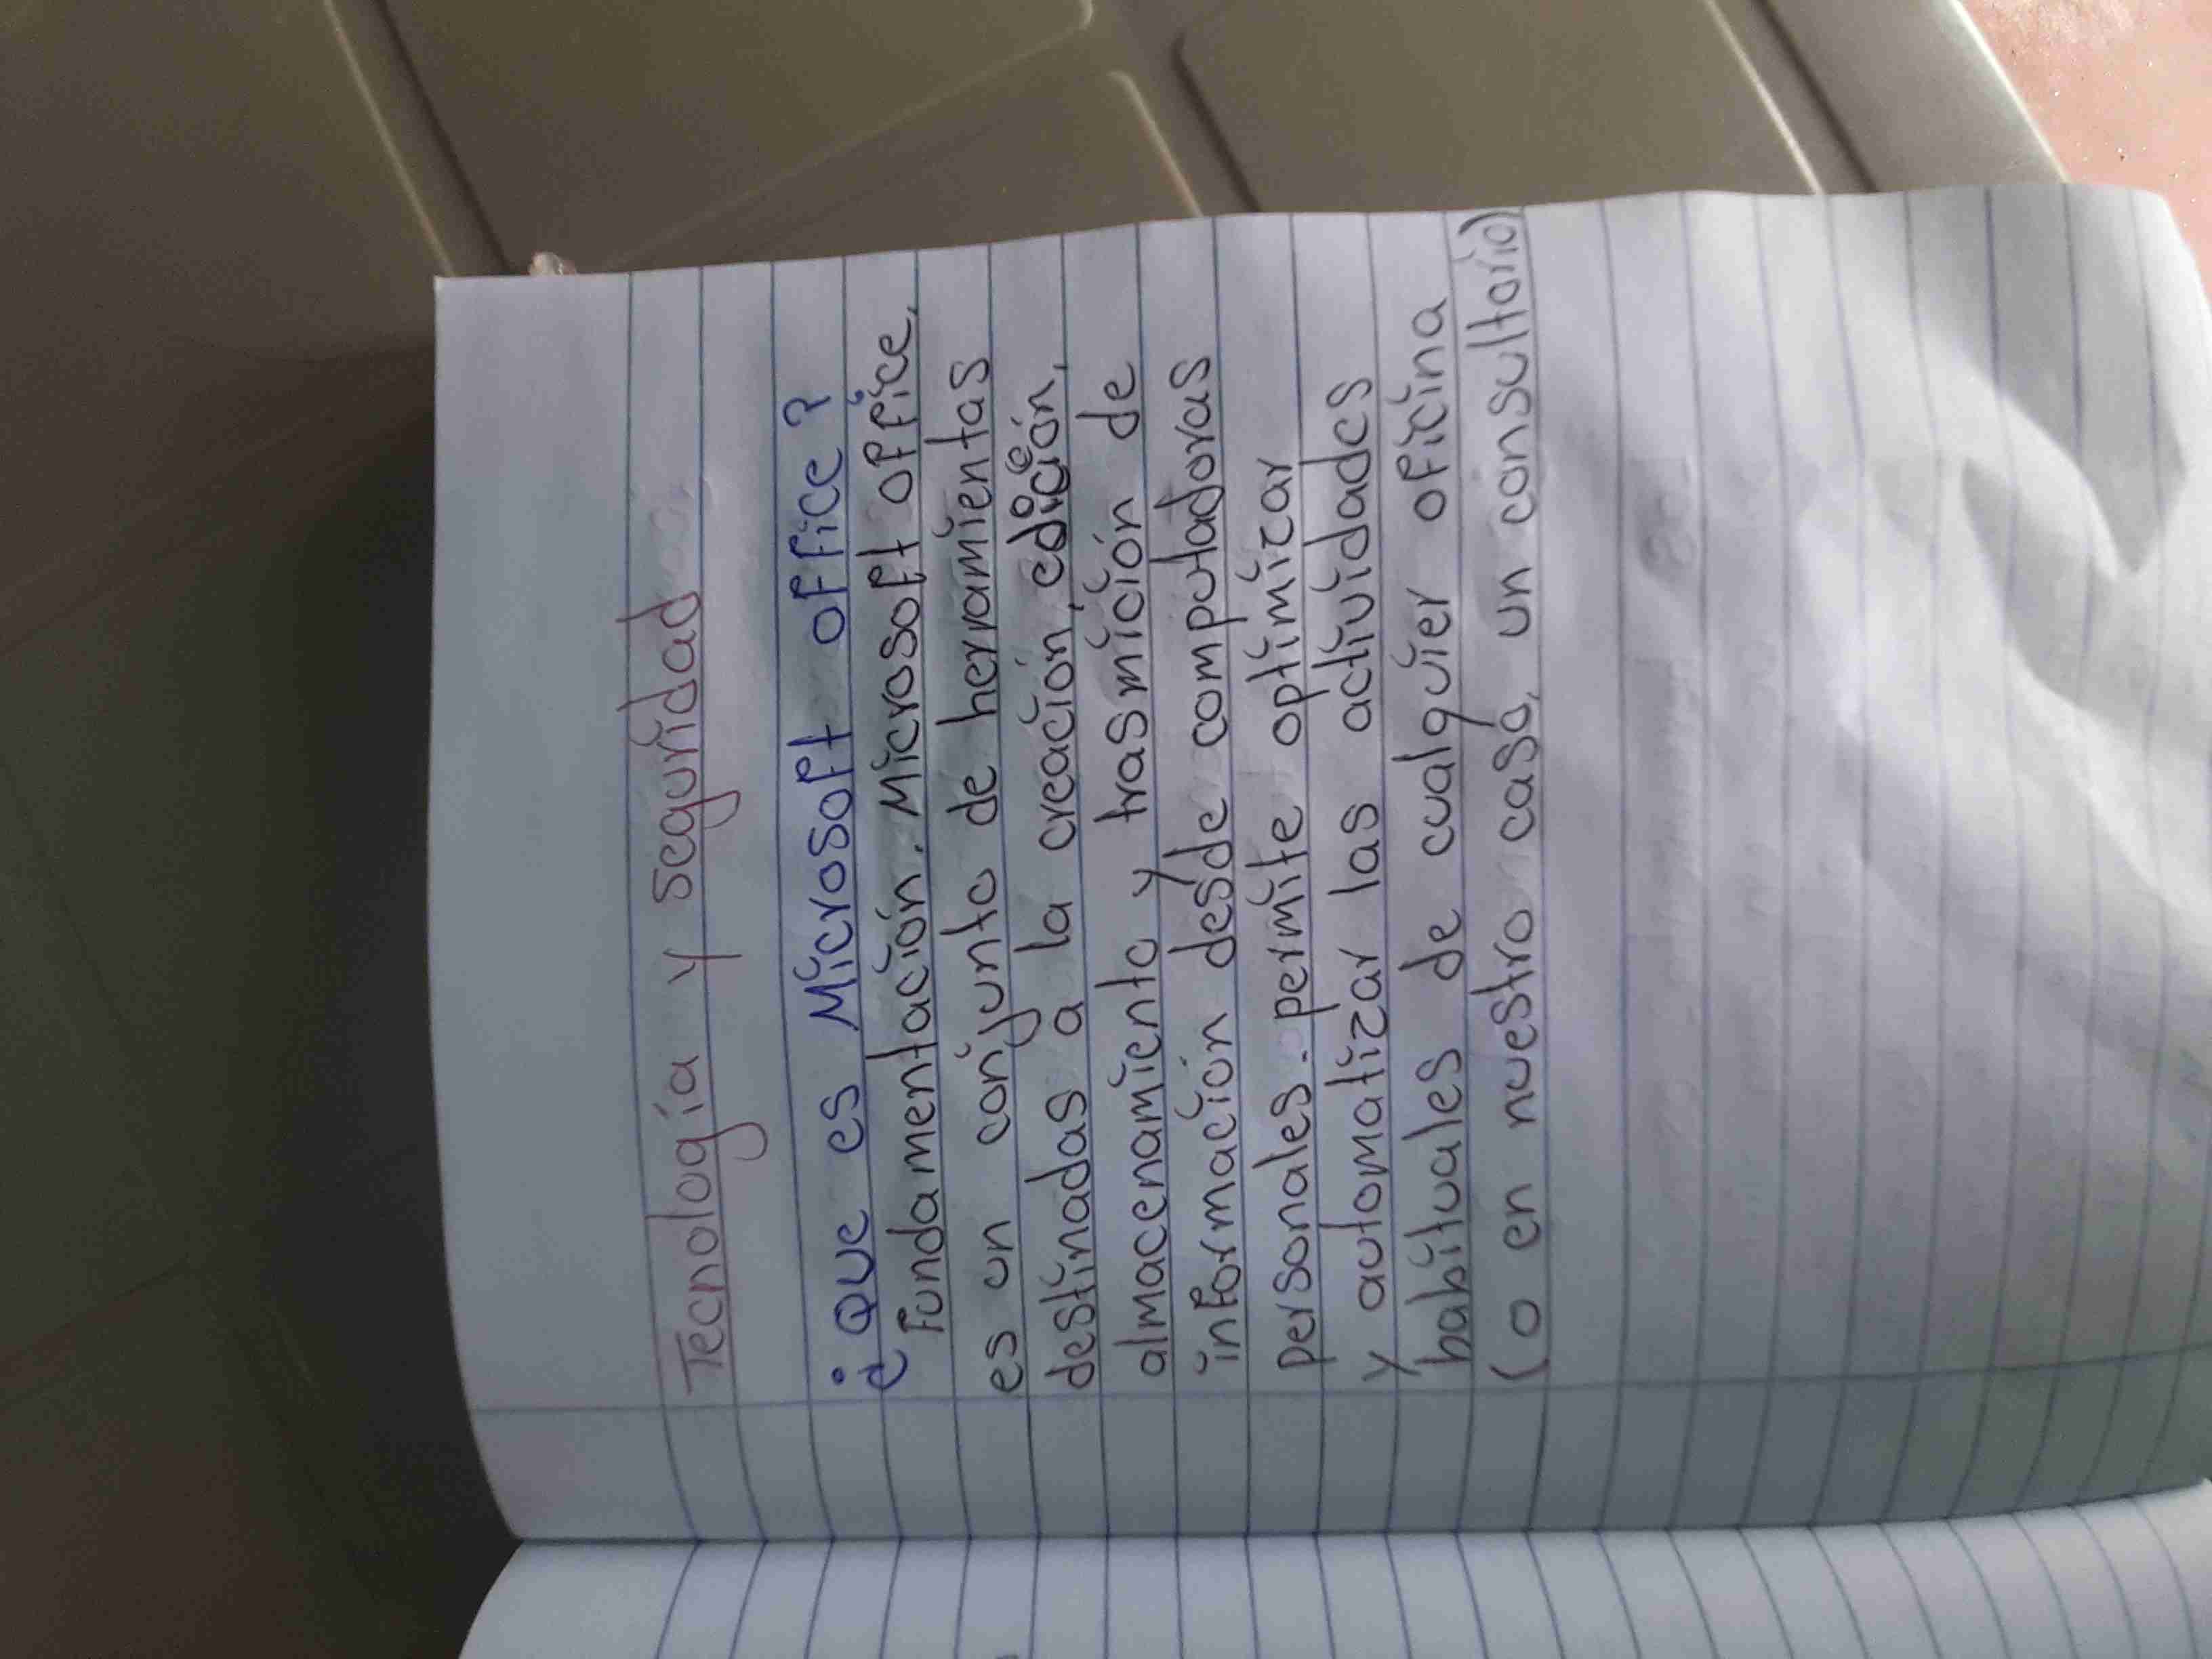 Tecnología y seguridad
¿Que es Microsoft office?
Fundamentación. Microsoft office,
es un conjunto de herramientas
destinadas a la creación, edición,
almacenamiento y trasmición de
información desde computadoras
personales. permite optimizar
y automatizar las actividades
habituales de cualquier oficina
(o en nuestro caso, un consultorio)